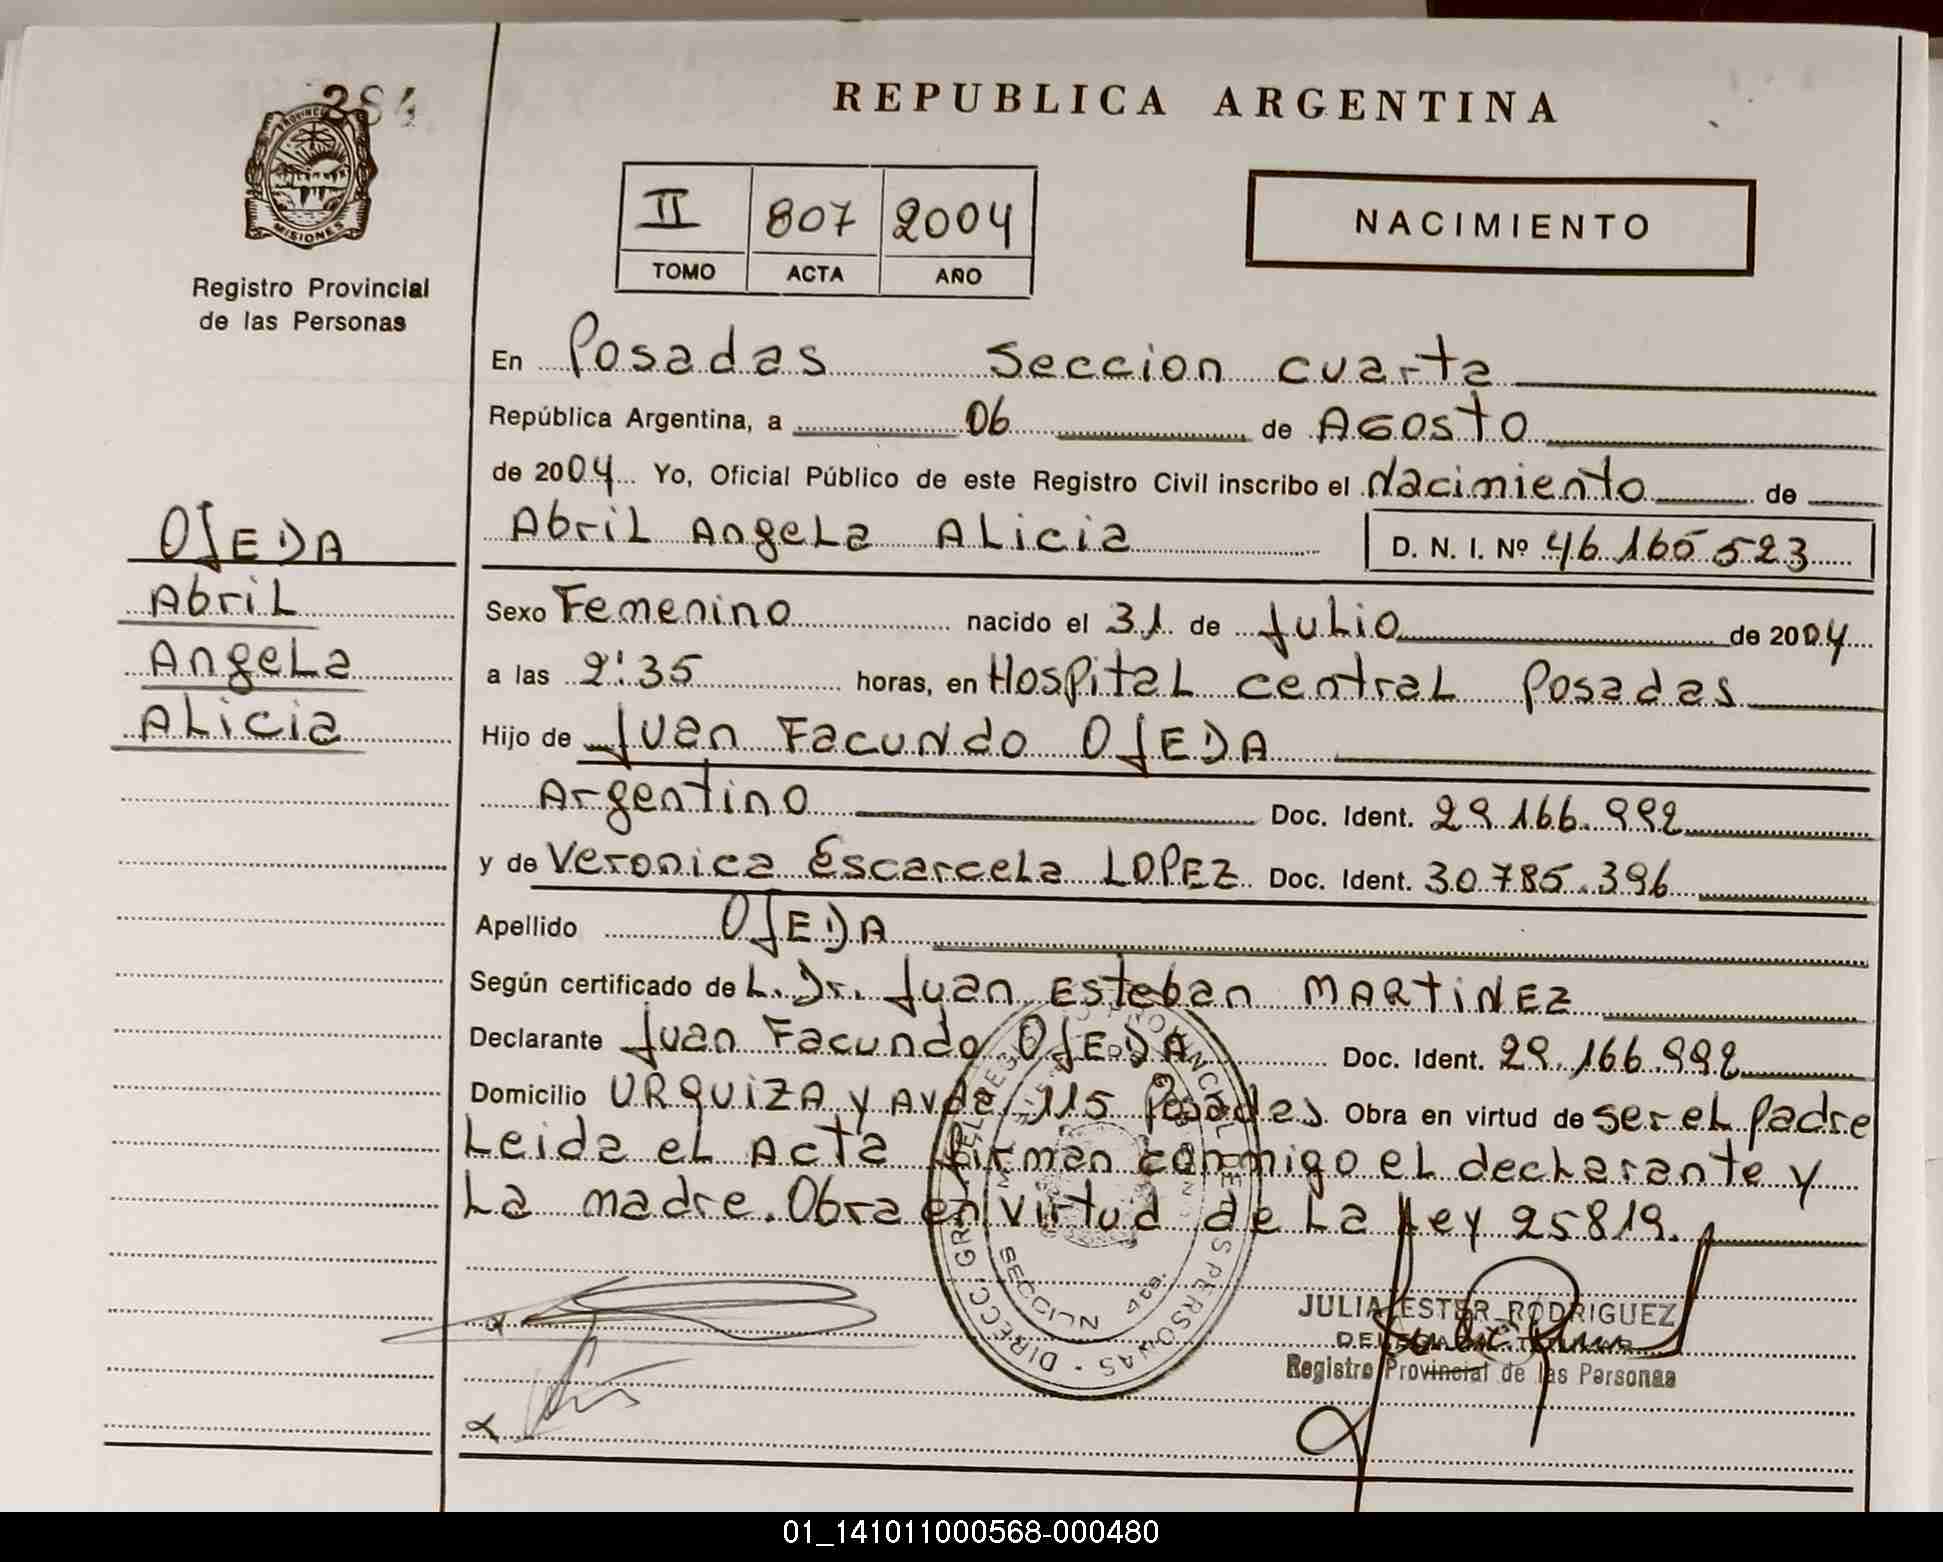 384
PROVINCIA
MISIONES
Registro Provincial
de las Personas
OJEDA
Abril
Angela
Alicia
REPUBLICA ARGENTINA
II 807 2004
TOMO ACTA AÑO
NACIMIENTO
En Posadas Seccion cuarta
República Argentina, a 06 de Agosto
de 2004 Yo, Oficial Público de este Registro Civil inscribo el Nacimiento de
Abril Angela Alicia D. N. I. Nº 46.165.523
Sexo Femenino nacido el 31 de Julio de 2004
a las 2:35 horas, en Hospital central Posadas
Hijo de Juan Facundo OJEDA
Argentino Doc. Ident. 29.166.992
y de Veronica Escarcela LOPEZ Doc. Ident. 30.785.396
Apellido OJEDA
Según certificado de L. Dr. Juan Esteban MARTINEZ
Declarante Juan Facundo OJEDA Doc. Ident. 29.166.992
Domicilio URQUIZA y AVda 115 Posadas Obra en virtud de ser el padre
Leida el Acta firman conmigo el declarante y
La madre. Obra en virtud de La Ley 25819.
SECCION 4ta.
JULIA ESTER RODRIGUEZ
Registro Provincial de las Personas
01_141011000568-000480